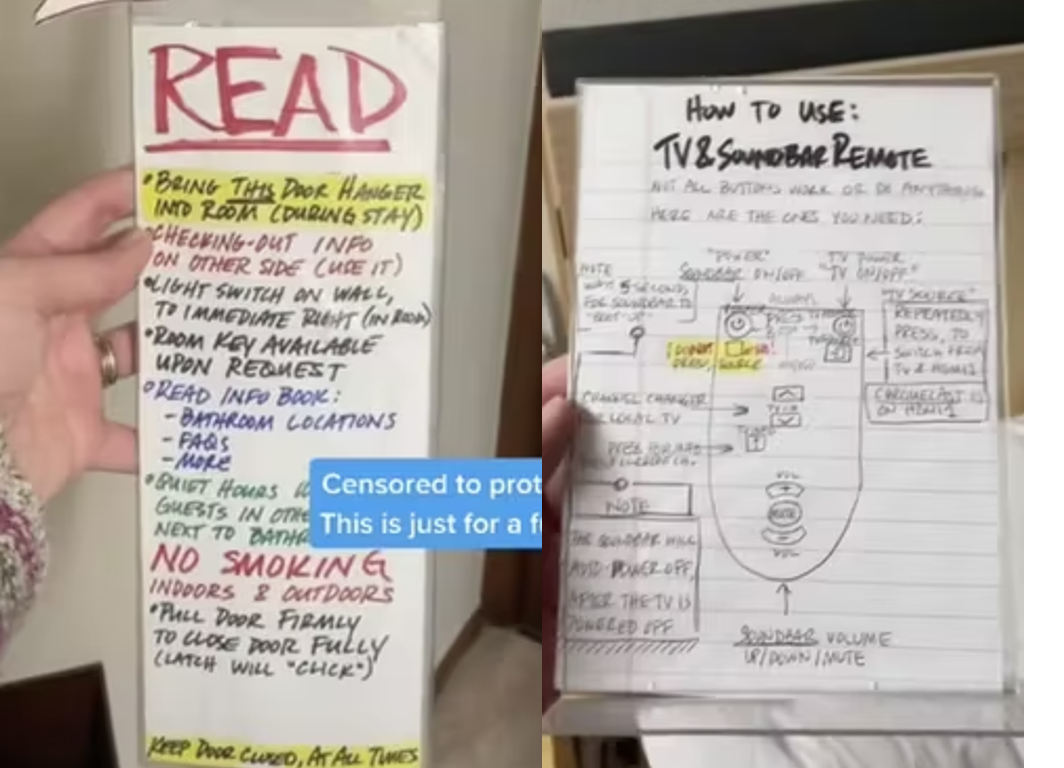 READ
• BRING THIS DOOR HANGER
INTO ROOM (DURING STAY)
• CHECKING-OUT INFO
ON OTHER SIDE (USE IT)
• LIGHT SWITCH ON WALL,
TO IMMEDIATE RIGHT (IN ROOM)
• ROOM KEY AVAILABLE
UPON REQUEST
• READ INFO BOOK:
- BATHROOM LOCATIONS
- FAQS
- MORE
• QUIET HOURS
GUESTS IN OTHE
NEXT TO BATHR
Censored to prot
This is just for a f
NO SMOKING
INDOORS & OUTDOORS
• PULL DOOR FIRMLY
TO CLOSE DOOR FULLY
(LATCH WILL "CLICK")
KEEP DOOR CLOSED, AT ALL TIMES
HOW TO USE:
TV & SOUNDBAR REMOTE
NOT ALL BUTTONS WORK OR DO ANYTHING
HERE ARE THE ONES YOU NEED:
"POWER"
SOUNDBAR ON/OFF
TV POWER
"TV ON/OFF"
NOTE
WAIT 5 SECONDS
FOR SOUNDBAR TO
"BOOT-UP"
ALWAYS
PRESS
"TV SOURCE"
REPEATEDLY
PRESS, TO
SWITCH FROM
TV & HDMI1
CHROMECAST IS
ON HDMI1
SOURCE
CHANNEL CHANGER
FOR LOCAL TV
PRESS FOR INFO
NOTE
THE SOUNDBAR WILL
AUTO-POWER OFF,
AFTER THE TV IS
POWERED OFF
VOL
+
MUTE
-
VOL
SOUNDBAR VOLUME
UP/DOWN/MUTE